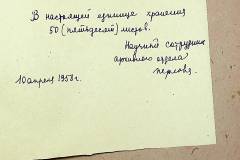 В настоящей единице хранения
50 (пятьдесят) листов.
Научный сотрудник
архивного отдела
10 апреля 1958 г.